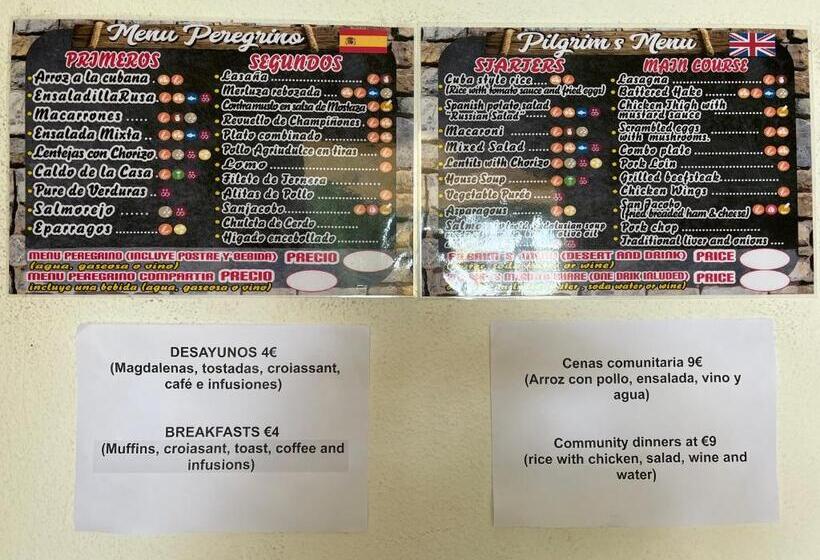 Menu Peregrino
PRIMEROS
Arroz a la cubana
Ensaladilla Rusa
Macarrones
Ensalada Mixta
Lentejas con Chorizo
Caldo de la Casa
Pure de Verduras
Salmorejo
Eparragos
SEGUNDOS
Lasaña
Merluza rebozada
Contramuslo en salsa de Mostaza
Revuello de Champiñones
Plato combinado
Pollo Agridulce en tiras
Lomo
Filete de Ternera
Alitas de Pollo
Sanjacobo
Chuleta de Cerdo
Higado encebollado
MENU PEREGRINO (INCLUYE POSTRE Y BEBIDA) PRECIO
(agua, gaseosa o vino)
MENU PEREGRINO COMPARTIR PRECIO
incluye una bebida (agua, gaseosa o vino)
Pilgrim's Menu
STARTERS
Cuba style rice
(Rice with tomato sauce and fried eggs)
Spanish potato salad
Russian Salad
Macaroni
Mixed Salad
Lentils with Chorizo
House Soup
Vegetable Purée
Asparagous
MAIN COURSE
Lasagna
Battered Hake
Chicken Thigh with
mustard sauce
Scrambled eggs
with mushrooms.
Combo plate
Pork Loin
Grilled beefsteak
Chicken Wings
San Jacobo
(fried breaded ham & cheese)
Pork chop
Traditional liver and onions
(DESERT AND DRINK) PRICE
soda water or wine)
SHARE (ONE DRIK INLUDED) PRICE
water - soda water or wine)
DESAYUNOS 4€
(Magdalenas, tostadas, croiassant,
café e infusiones)
BREAKFASTS €4
(Muffins, croiasant, toast, coffee and
infusions)
Cenas comunitaria 9€
(Arroz con pollo, ensalada, vino y
agua)
Community dinners at €9
(rice with chicken, salad, wine and
water)